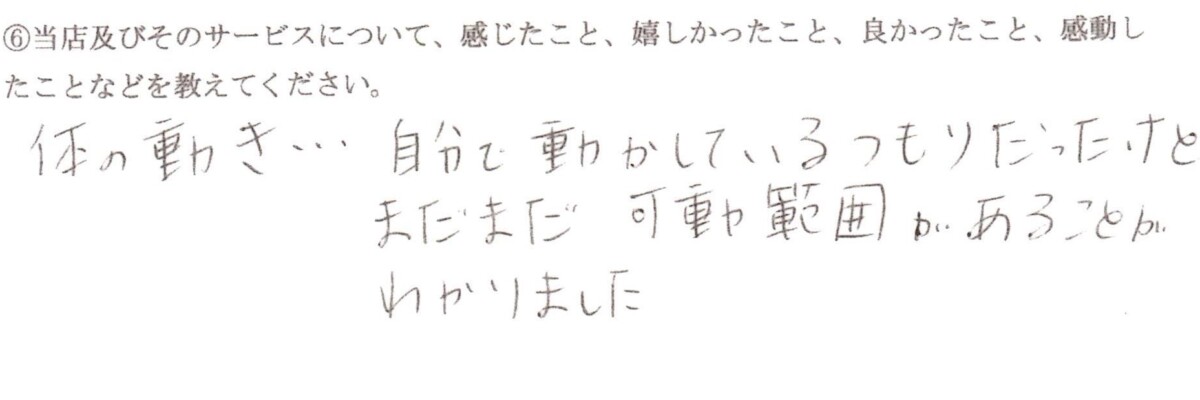 ⑥当店及びそのサービスについて、感じたこと、嬉しかったこと、良かったこと、感動し
たことなどを教えてください。
体の動き… 自分で動かしているつもりだったけど
まだまだ 可動範囲があることが
わかりました